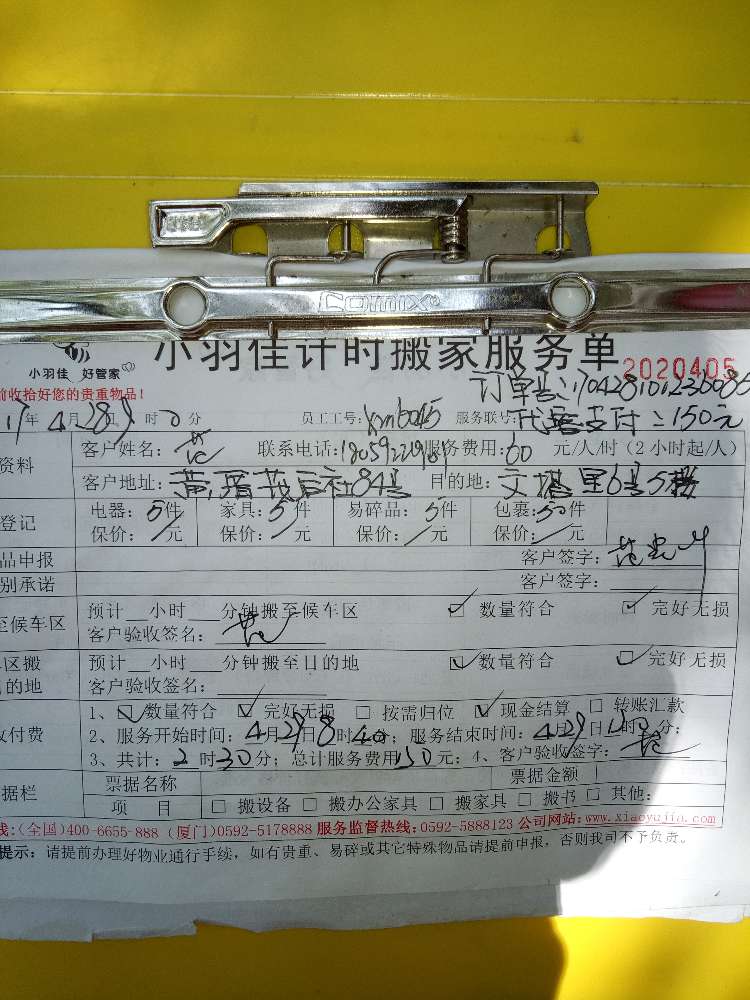 COMIX®
小羽佳 好管家
小羽佳计时搬家服务单 2020405
前收拾好您的贵重物品!
订单号:
17年4月28日 时 分 员工工号:xm6045 服务联号:代客支付:150元
资料 客户姓名:范 联系电话: 服务费用:60 元/人/时(2小时起/人)
客户地址: 后社84号 目的地:文塔里6号5楼
登记 电器:5件 家具:5件 易碎品:5件 包裹:50件
保价:/元 保价:/元 保价:/元 保价:/元
品申报 客户签字:范
别承诺 客户签字:
至候车区 预计__小时___分钟搬至候车区 数量符合 完好无损
客户验收签名:范
区搬 预计__小时___分钟搬至目的地 数量符合 完好无损
的地 客户验收签名:
收付费 1、数量符合 完好无损 按需归位 现金结算 转账汇款
2、服务开始时间:4月29日8时40分;服务结束时间:4月29日 时 分;
3、共计:2时30分;总计服务费用150元;4、客户验收签字:范
据栏 票据名称 票据金额
项 目 搬设备 搬办公家具 搬家具 搬书 其他:
线:(全国)400-6655-888 (厦门)0592-5178888 服务监督热线:0592-5888123 公司网站:www.xiaoyujia.com
提示:请提前办理好物业通行手续,如有贵重、易碎或其它特殊物品请提前申报,否则我司不予负责。